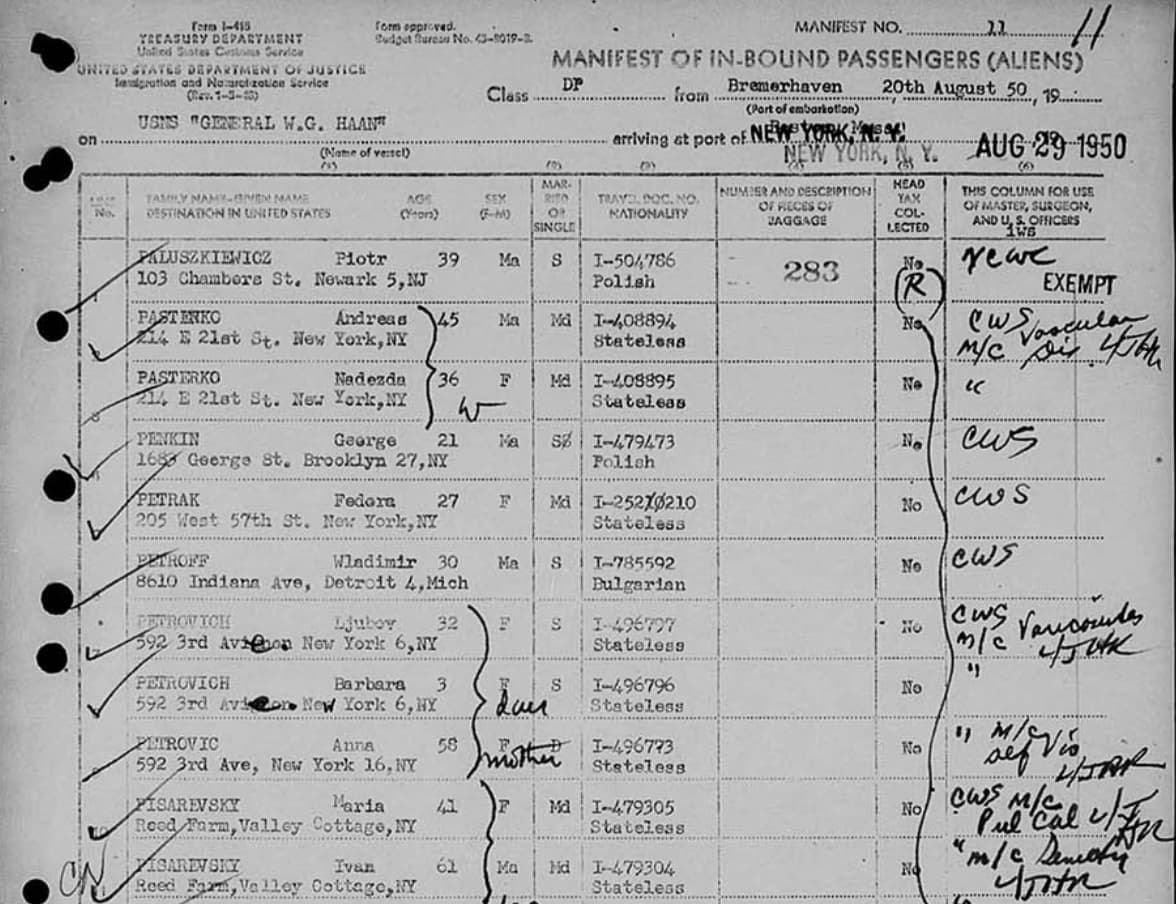 Form I-415
TREASURY DEPARTMENT
United States Customs Service
UNITED STATES DEPARTMENT OF JUSTICE
Immigration and Naturalization Service
Form approved.
Budget Bureau No. 43-R019-2.
MANIFEST NO. 11 11
MANIFEST OF IN-BOUND PASSENGERS (ALIENS)
Class DP from Bremerhaven 20th August 50, 19
(Port of embarkation)
on USNS "GENERAL W.G. HAAN" arriving at port of NEW YORK, N. Y. AUG 29 1950
(Name of vessel) NEW YORK, N. Y.
(1) (2) (3) (4) (5) (6)
LINE No. FAMILY NAME-GIVEN NAME DESTINATION IN UNITED STATES AGE (Years) SEX (F-M) MARRIED OR SINGLE TRAVEL DOC. NO. NATIONALITY NUMBER AND DESCRIPTION OF PIECES OF BAGGAGE HEAD TAX COLLECTED THIS COLUMN FOR USE OF MASTER, SURGEON, AND U. S. OFFICERS
PALUSZKIEWICZ Piotr 39 Ma S I-504786 283 No NCWC
103 Chambers St. Newark 5,NJ Polish (R) EXEMPT
PASTERKO Andreas 45 Ma Md I-408894 No CWS Vascular
214 E 21st St. New York,NY Stateless M/C Dis
PASTERKO Nadezda 36 F Md I-408895 No "
214 E 21st St. New York,NY W Stateless
PENKIN George 21 Ma S I-479473 No CWS
1683 George St. Brooklyn 27,NY Polish
PETRAK Fedora 27 F Md I-252210210 No CWS
205 West 57th St. New York,NY Stateless
PETROFF Wladimir 30 Ma S I-785592 No CWS
8610 Indiana Ave, Detroit 4,Mich Bulgarian
PETROVICH Ljubov 32 F S I-496797 No CWS
592 3rd Ave New York 6,NY Stateless M/C
PETROVICH Barbara 3 F S I-496796 No "
592 3rd Ave New York 6,NY dau Stateless
PETROVIC Anna 58 F D I-496773 No " M/C
592 3rd Ave, New York 16,NY mother Stateless def Vis
PISAREVSKY Maria 41 F Md I-479305 No CWS M/C
Reed Farm,Valley Cottage,NY Stateless Pul Cal
PISAREVSKY Ivan 61 Ma Md I-479304 No " M/C
Reed Farm,Valley Cottage,NY Stateless